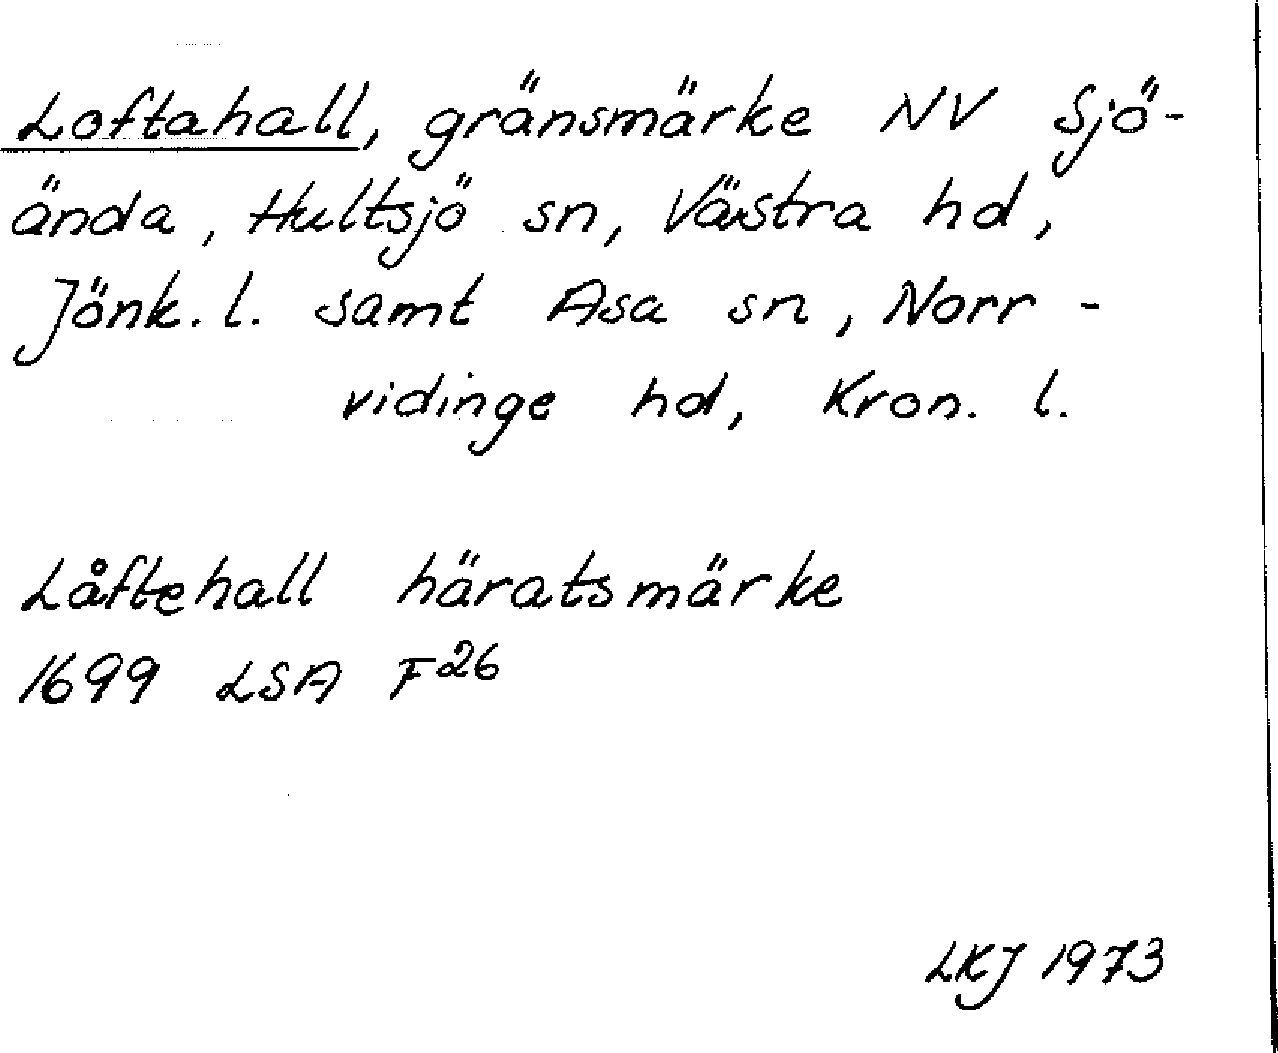 Loftahall, gränsmärke NV Sjö-
ända, Hultsjö sn, Västra hd,
Jönk. l. samt Asa sn, Norr-
vidinge hd, Kron. l.
Låftehall häratsmärke
1699 LSA F26
LKJ 1973